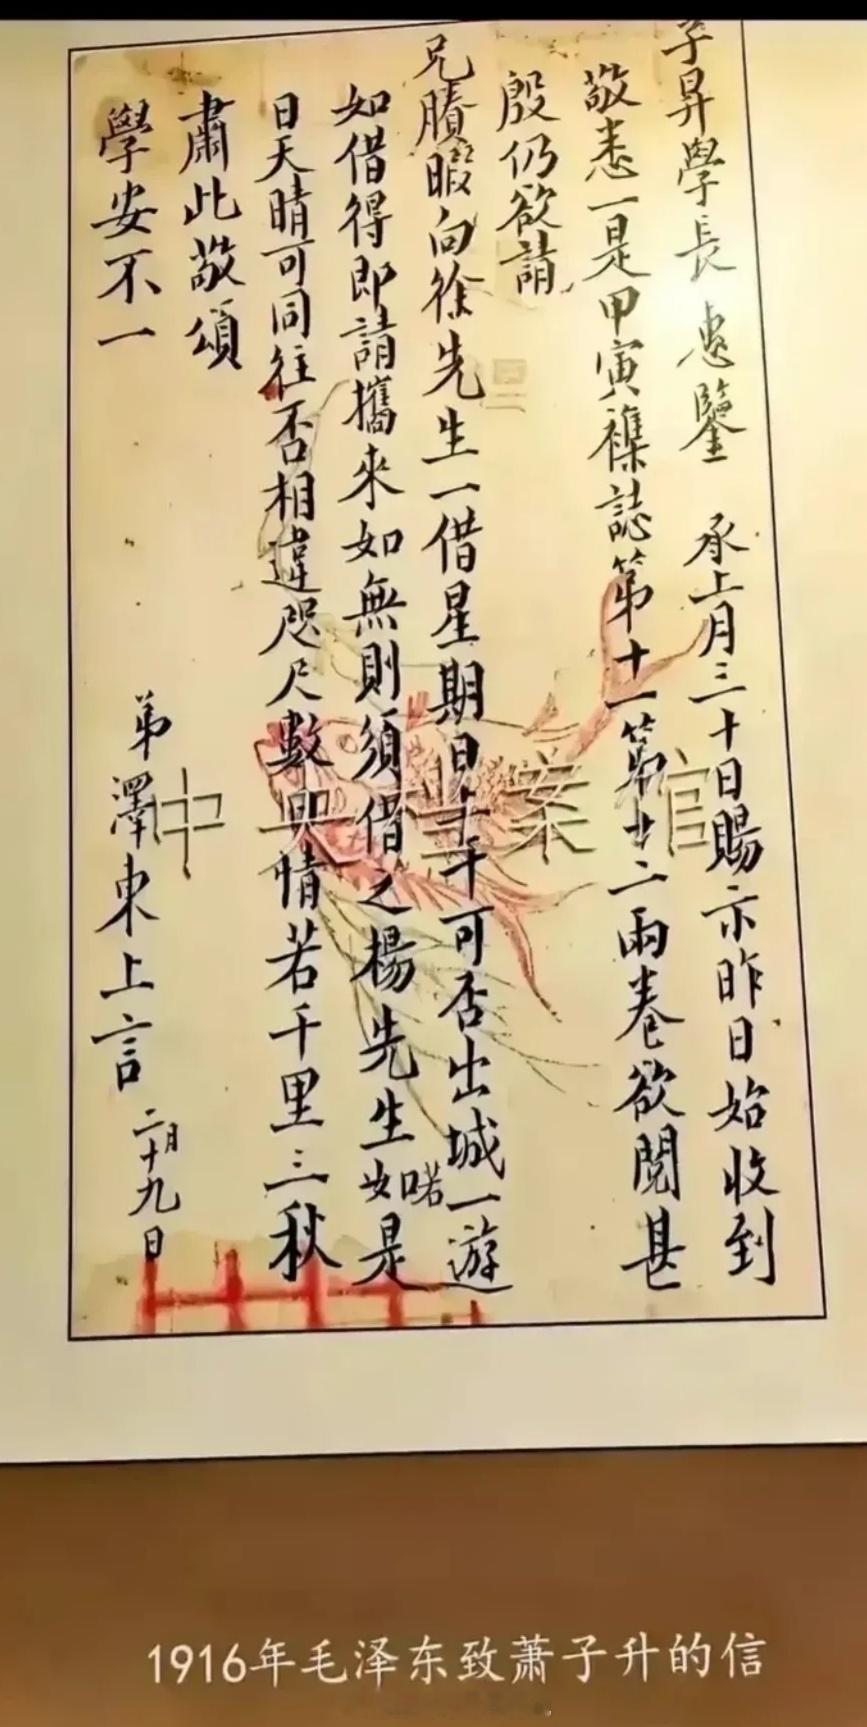 子昇學長惠鑒 承上月三十日賜示昨日始收到
敬悉一是甲寅襍誌第十一第十二兩卷欲閱甚
殷仍欲請
兄賸暇向徐先生一借星期日上午可否出城一游
如借得即請攜來如無則須借之楊先生如喏是
日天晴可同往否相違咫尺數日情若千里三秋
肅此敬頌
學安不一
弟澤東上言 二月十九日
中央档案馆
1916年毛泽东致萧子升的信